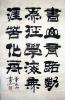 書山有路勤
為徑學海無
涯苦作舟